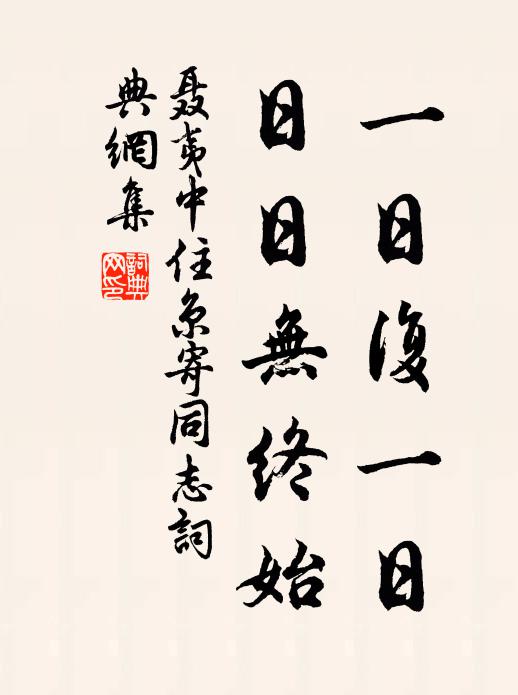 一日復一日
日日無終始
聂夷中住京寄同志詞
典網集
詞典
网印